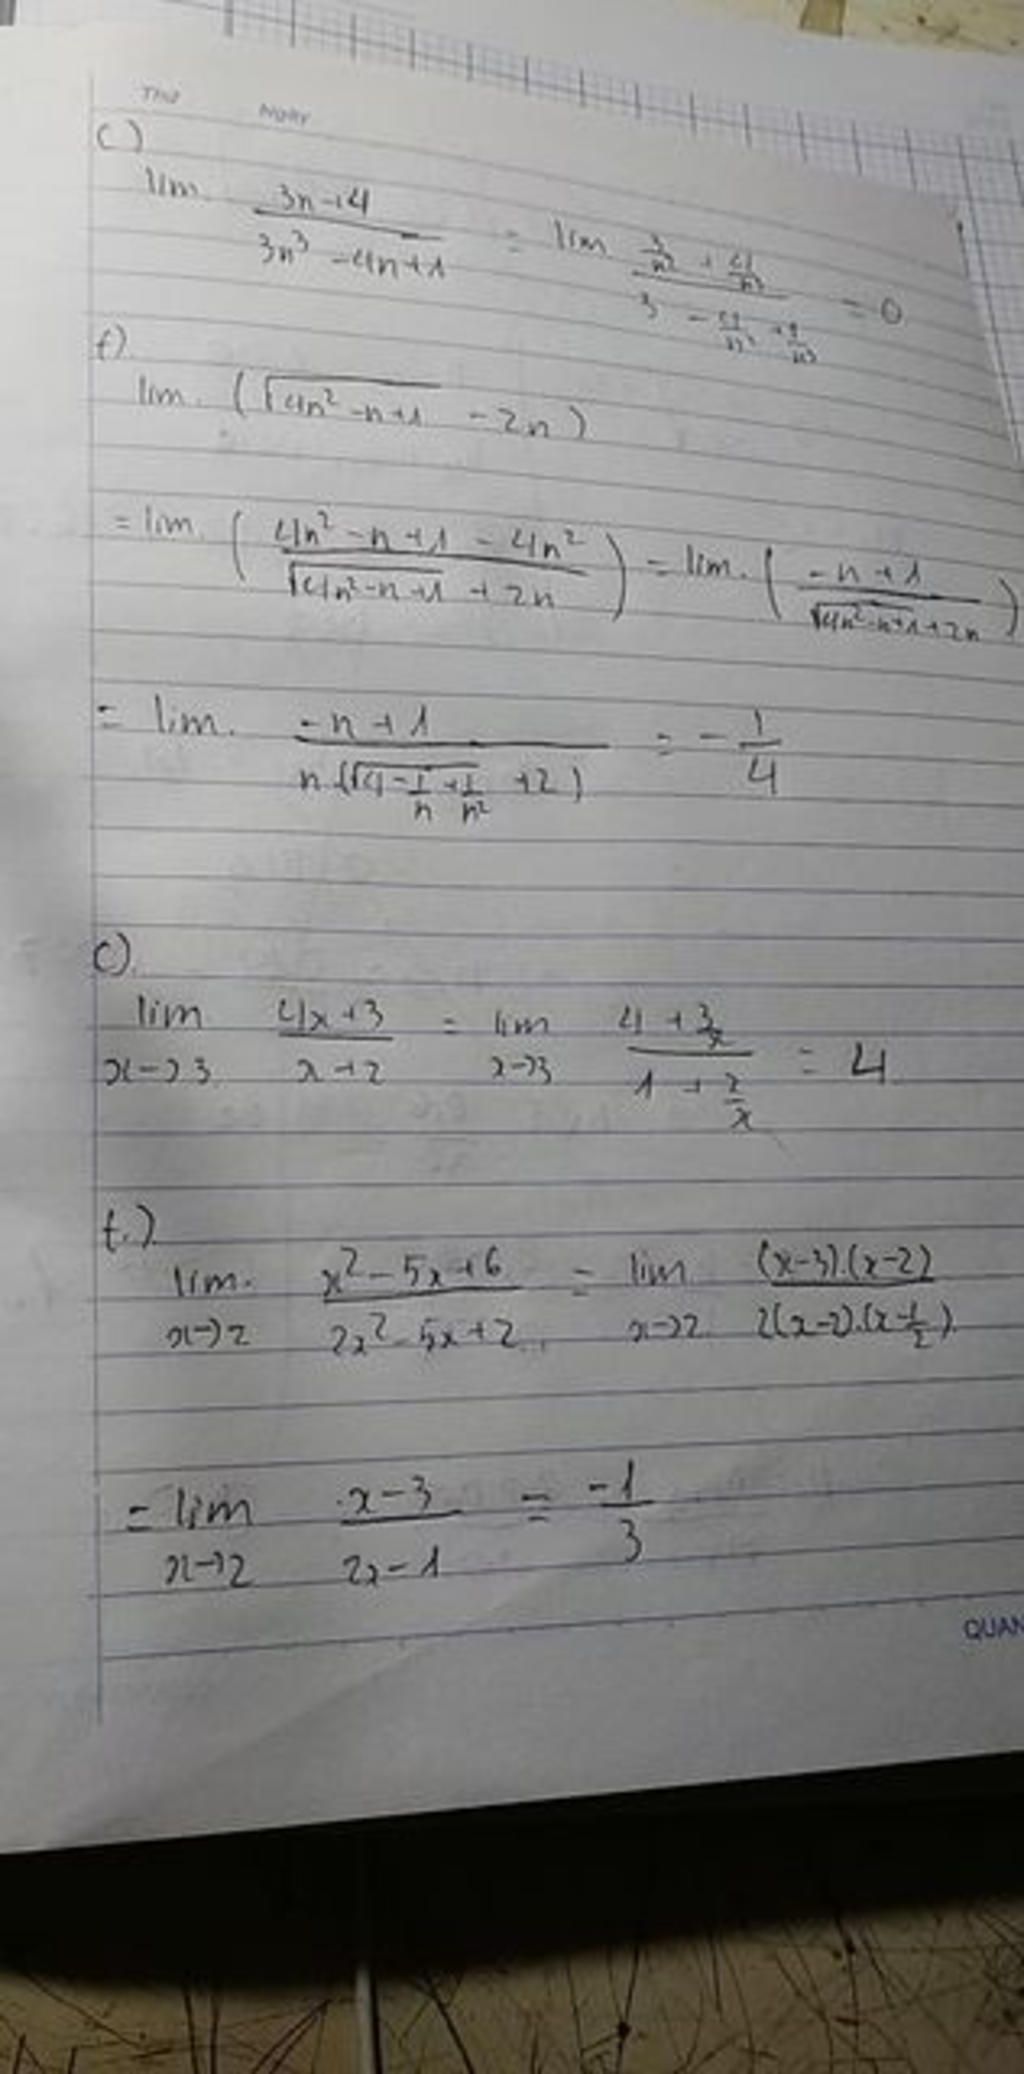 Thứ Ngày
c)
lim \frac{3n+4}{3n^3-4n+1} = lim \frac{\frac{3}{n^2}+\frac{4}{n^3}}{3-\frac{4}{n^2}+\frac{1}{n^3}} = 0
f)
lim. (\sqrt{4n^2-n+1} - 2n)
= lim. (\frac{4n^2-n+1-4n^2}{\sqrt{4n^2-n+1}+2n}) = lim. (\frac{-n+1}{\sqrt{4n^2-n+1}+2n})
= lim. \frac{-n+1}{n(\sqrt{4-\frac{1}{n}+\frac{1}{n^2}}+2)} = -\frac{1}{4}
c).
lim_{x→3} \frac{4x+3}{x+2} = lim_{x→3} \frac{4+\frac{3}{x}}{1+\frac{2}{x}} = 4
f.)
lim._{x→2} \frac{x^2-5x+6}{2x^2-5x+2} = lim_{x→2} \frac{(x-3).(x-2)}{2(x-2).(x-\frac{1}{2})}
= lim_{x→2} \frac{x-3}{2x-1} = \frac{-1}{3}
QUAN